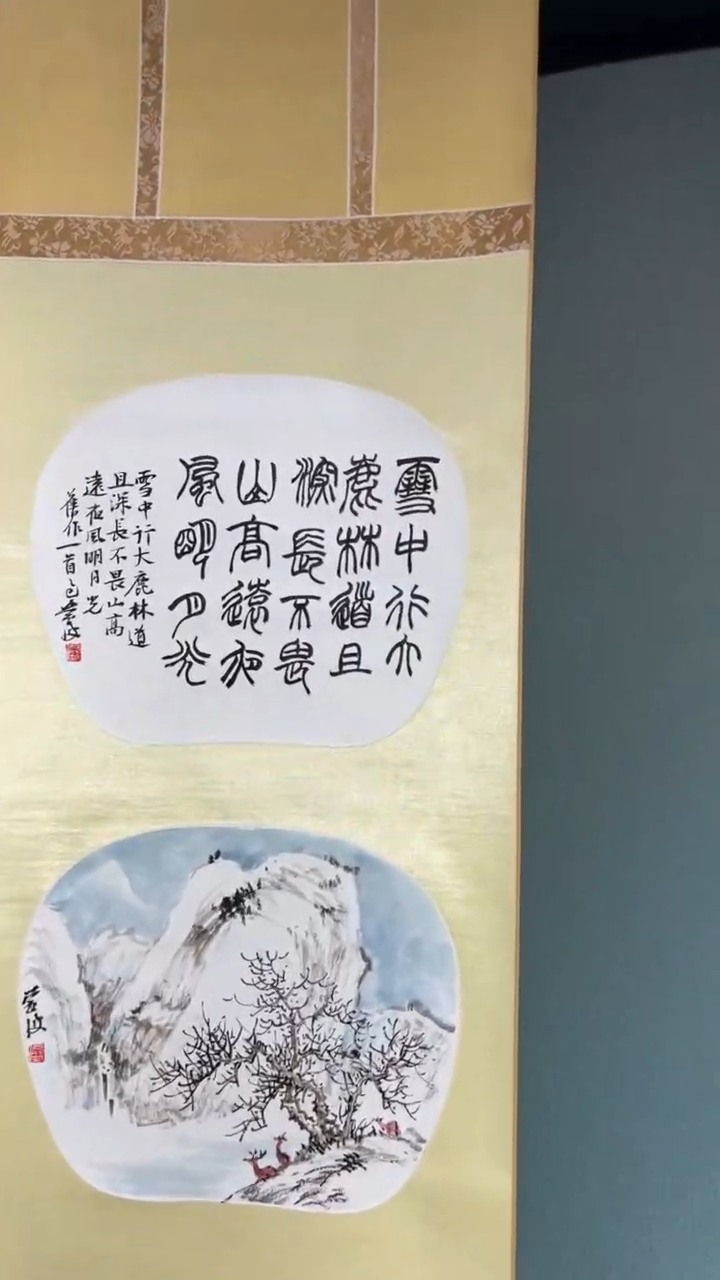 雪中行大
鹿林道且
深長不畏
山高遠夜
風明月光
雪中行大鹿林道
且深長不畏山高
遠夜風明月光
舊作一首